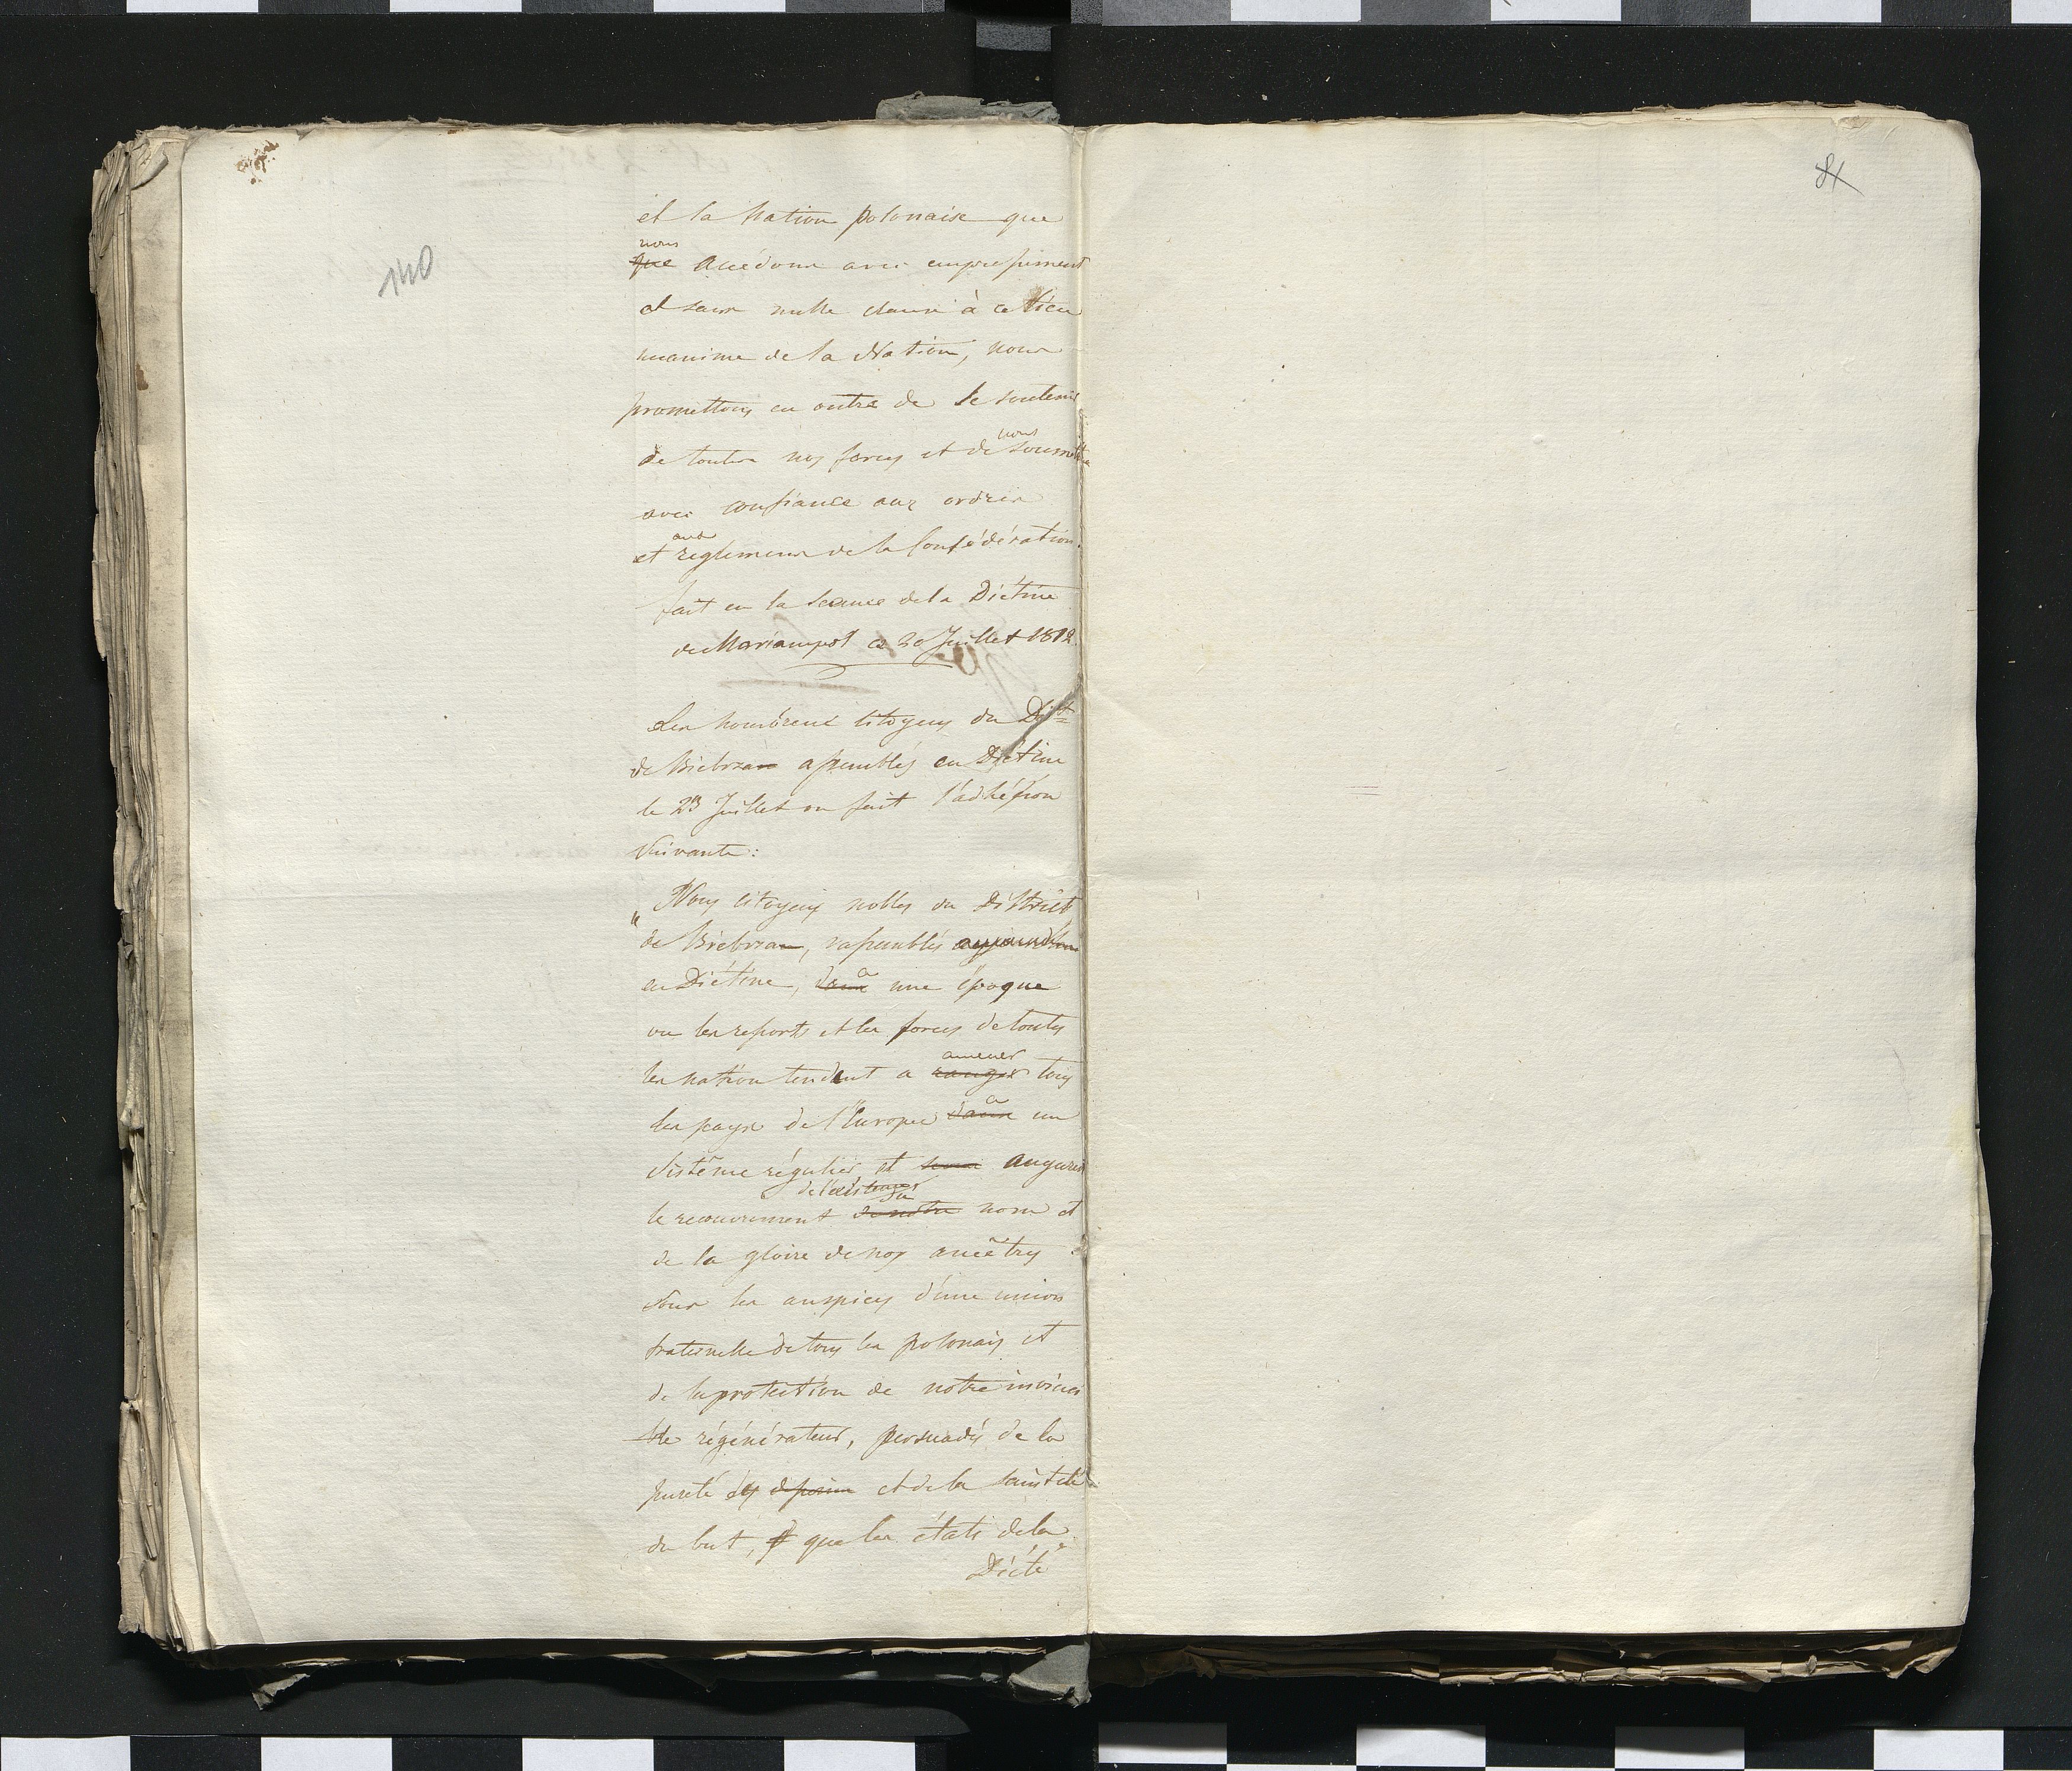 140
81
et la Nation polonaise que
nous
que accédons avec empressement
et sans nulle clause à ce lien
unanime de la Nation, nous
promettons en outre de le soutenir
nous
de toutes nos forces et de soumettre
avec confiance aux ordres
aux
et reglemens de la Confédération.
fait en la Seance de la Diétine
de Mariampol ce 20 Juillet 1812.
Les nombreux Citoyens du Distt
de Biebrza assemblés en Diétine
le 23 Juillet on fait l'adhésion
Suivante:
„ Nous Citoyens nobles du District
de Biebrza, rassemblés aujourd'hui
a
en Diétine, dans une époque
ou les ressorts et les forces de toutes
amener
les nation tendent a ranger tous
a
les pays de l'Europe dans un
Sistême régulier et augurer
de l'existence du
le recouvrement de notre nom et
de la gloire de nos ancêtres
Sous les auspices d'une union
fraternelle de tous les polonais et
de la protection de notre invinci
ble régénérateur, persuadés de la
pureté des et de la sainteté
du but, que les états de la
Diéte